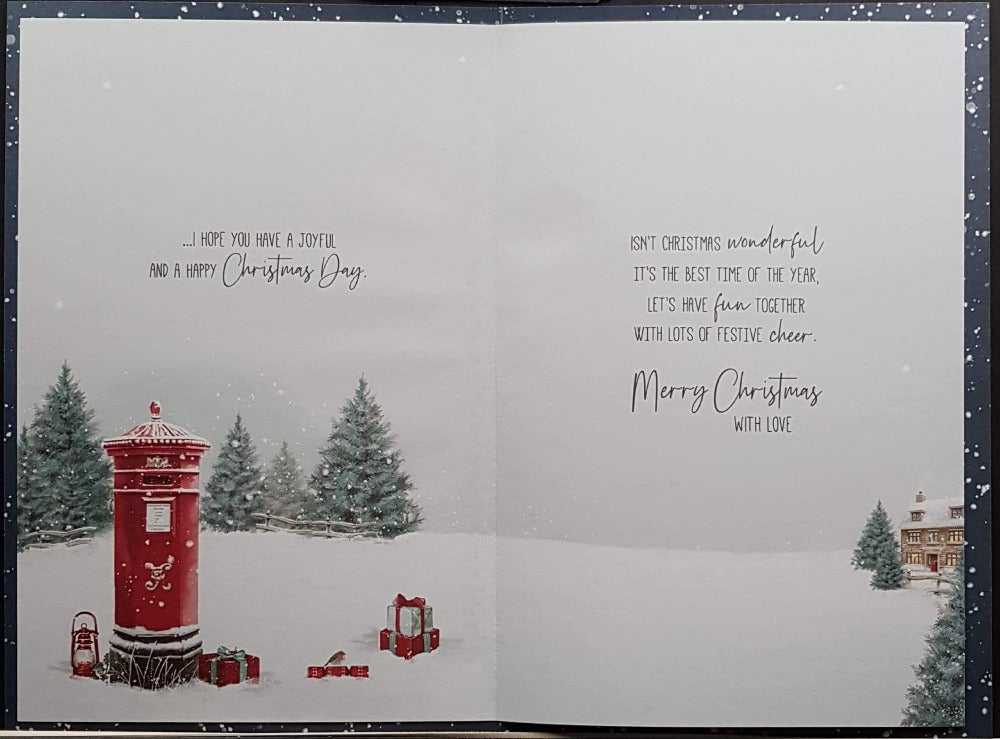 ...I HOPE YOU HAVE A JOYFUL
AND A HAPPY Christmas Day.
ISN'T CHRISTMAS wonderful
IT'S THE BEST TIME OF THE YEAR,
LET'S HAVE fun TOGETHER
WITH LOTS OF FESTIVE cheer.
Merry Christmas
WITH LOVE